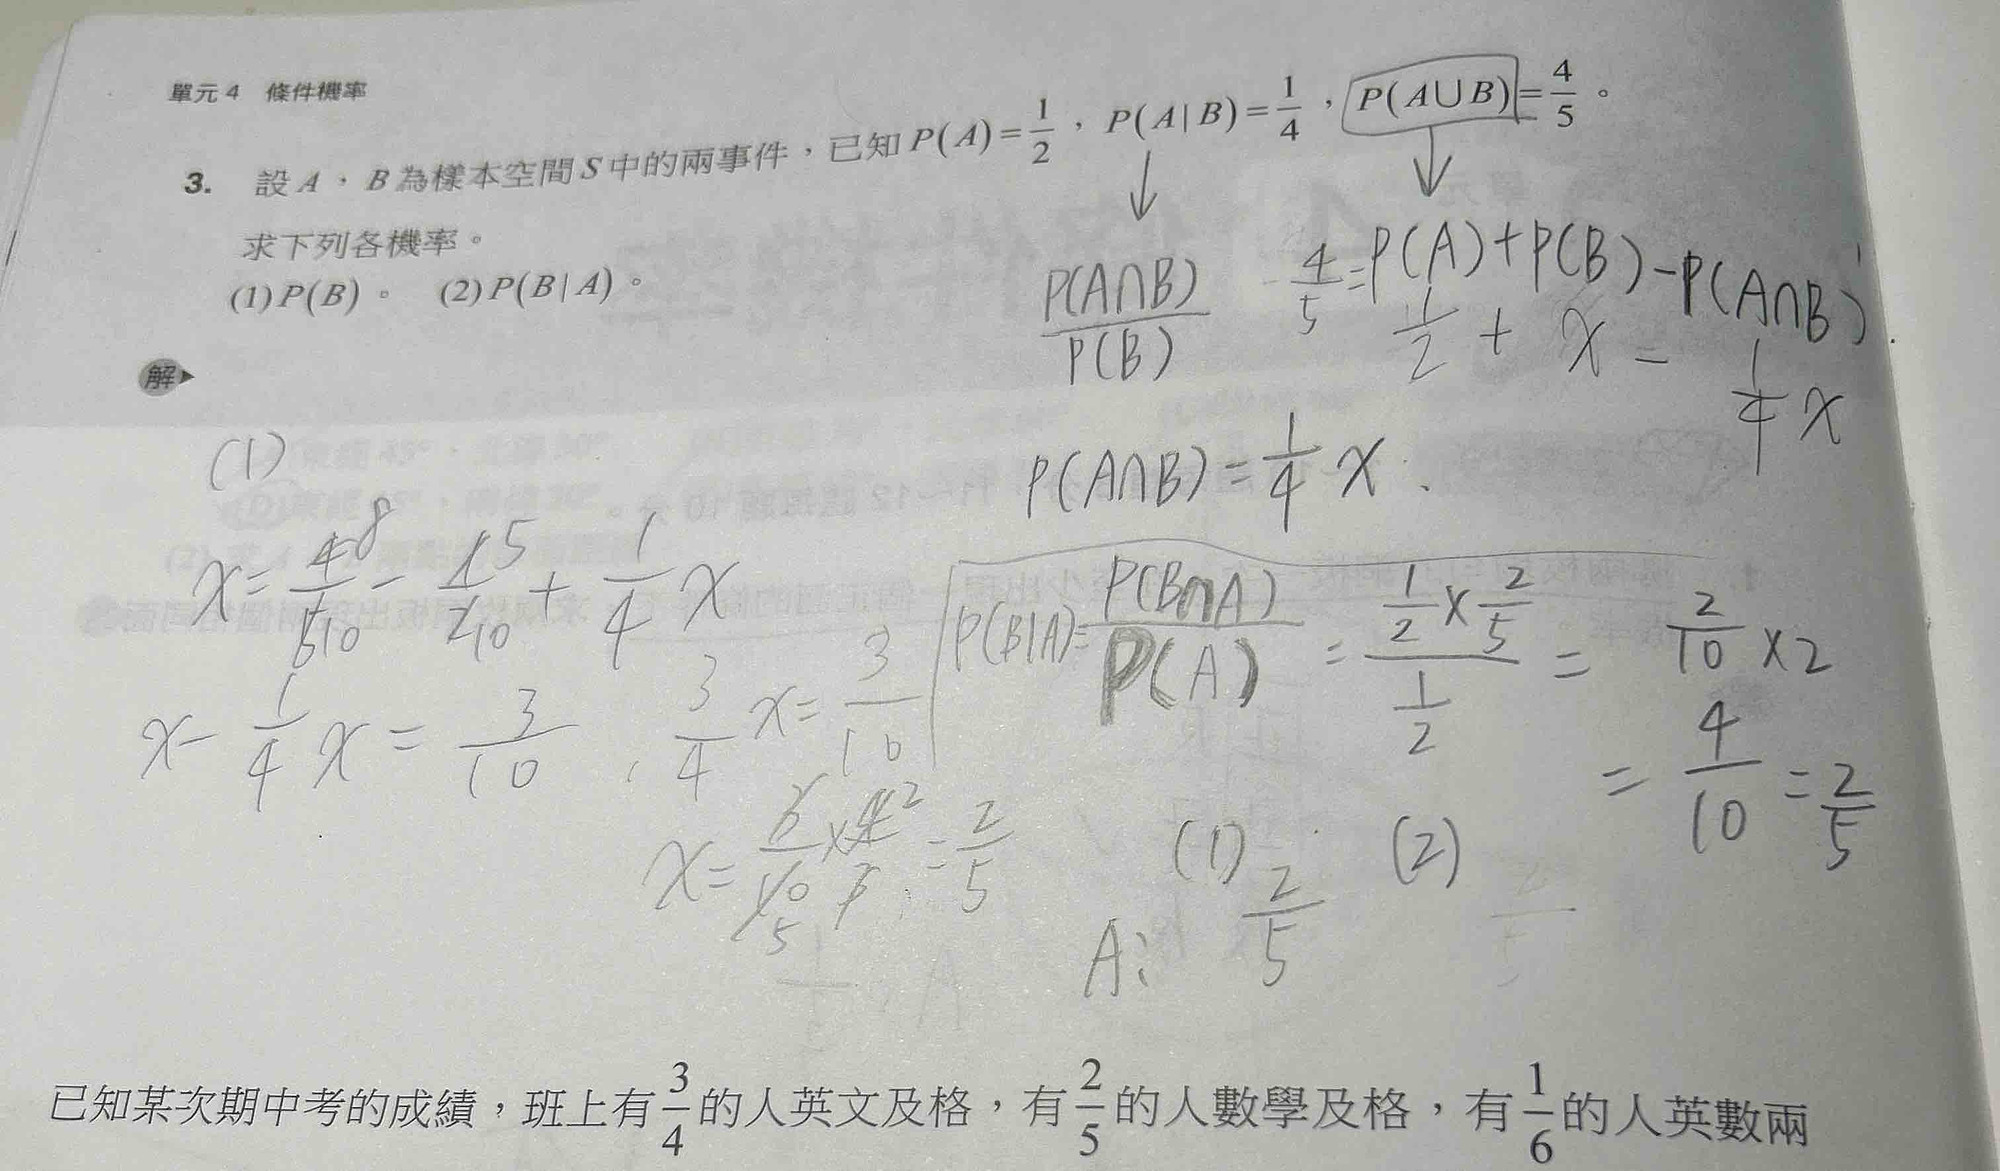 單元 4 條件機率
3. 設 A、B 為樣本空間 S 中的兩事件,已知 P(A)=1/2,P(A|B)=1/4,P(A∪B)=4/5。
求下列各機率。
(1)P(B)。 (2)P(B|A)。
P(A∩B)/P(B)
4/5=P(A)+P(B)-P(A∩B)
1/2 + x - 1/4 x
解
P(A∩B)=1/4 x
(1)
x=8/10-5/10+1/4 x
x-1/4 x=3/10, 3/4 x=3/10
x=3/10×4/3=2/5
P(B|A)=P(B∩A)/P(A)=(1/2×2/5)/(1/2)=2/10×2
=4/10=2/5
(1) (2)
A: 2/5
已知某次期中考的成績,班上有3/4的人英文及格,有2/5的人數學及格,有1/6的人英數兩